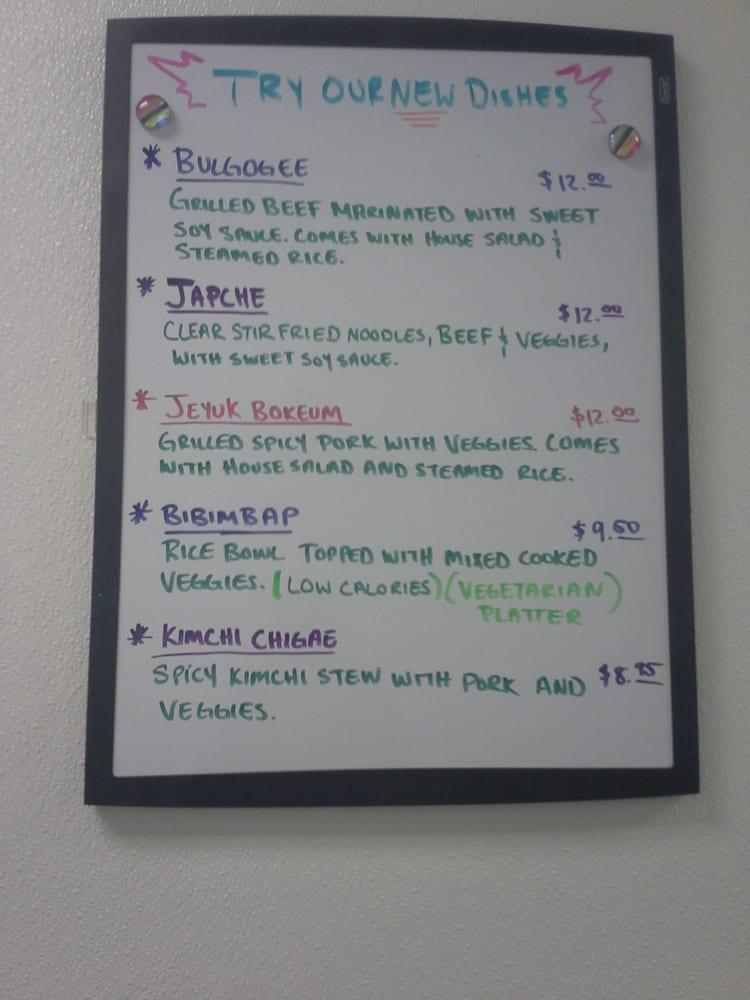 TRY OUR NEW DISHES
* BULGOGEE $12.00
GRILLED BEEF MARINATED WITH SWEET
SOY SAUCE. COMES WITH HOUSE SALAD &
STEAMED RICE.
* JAPCHE $12.00
CLEAR STIR FRIED NOODLES, BEEF & VEGGIES,
WITH SWEET SOY SAUCE.
* JEYUK BOKEUM $12.00
GRILLED SPICY PORK WITH VEGGIES. COMES
WITH HOUSE SALAD AND STEAMED RICE.
* BIBIMBAP $9.50
RICE BOWL TOPPED WITH MIXED COOKED
VEGGIES. (LOW CALORIES) (VEGETARIAN)
PLATTER
* KIMCHI CHIGAE
SPICY KIMCHI STEW WITH PORK AND $8.95
VEGGIES.